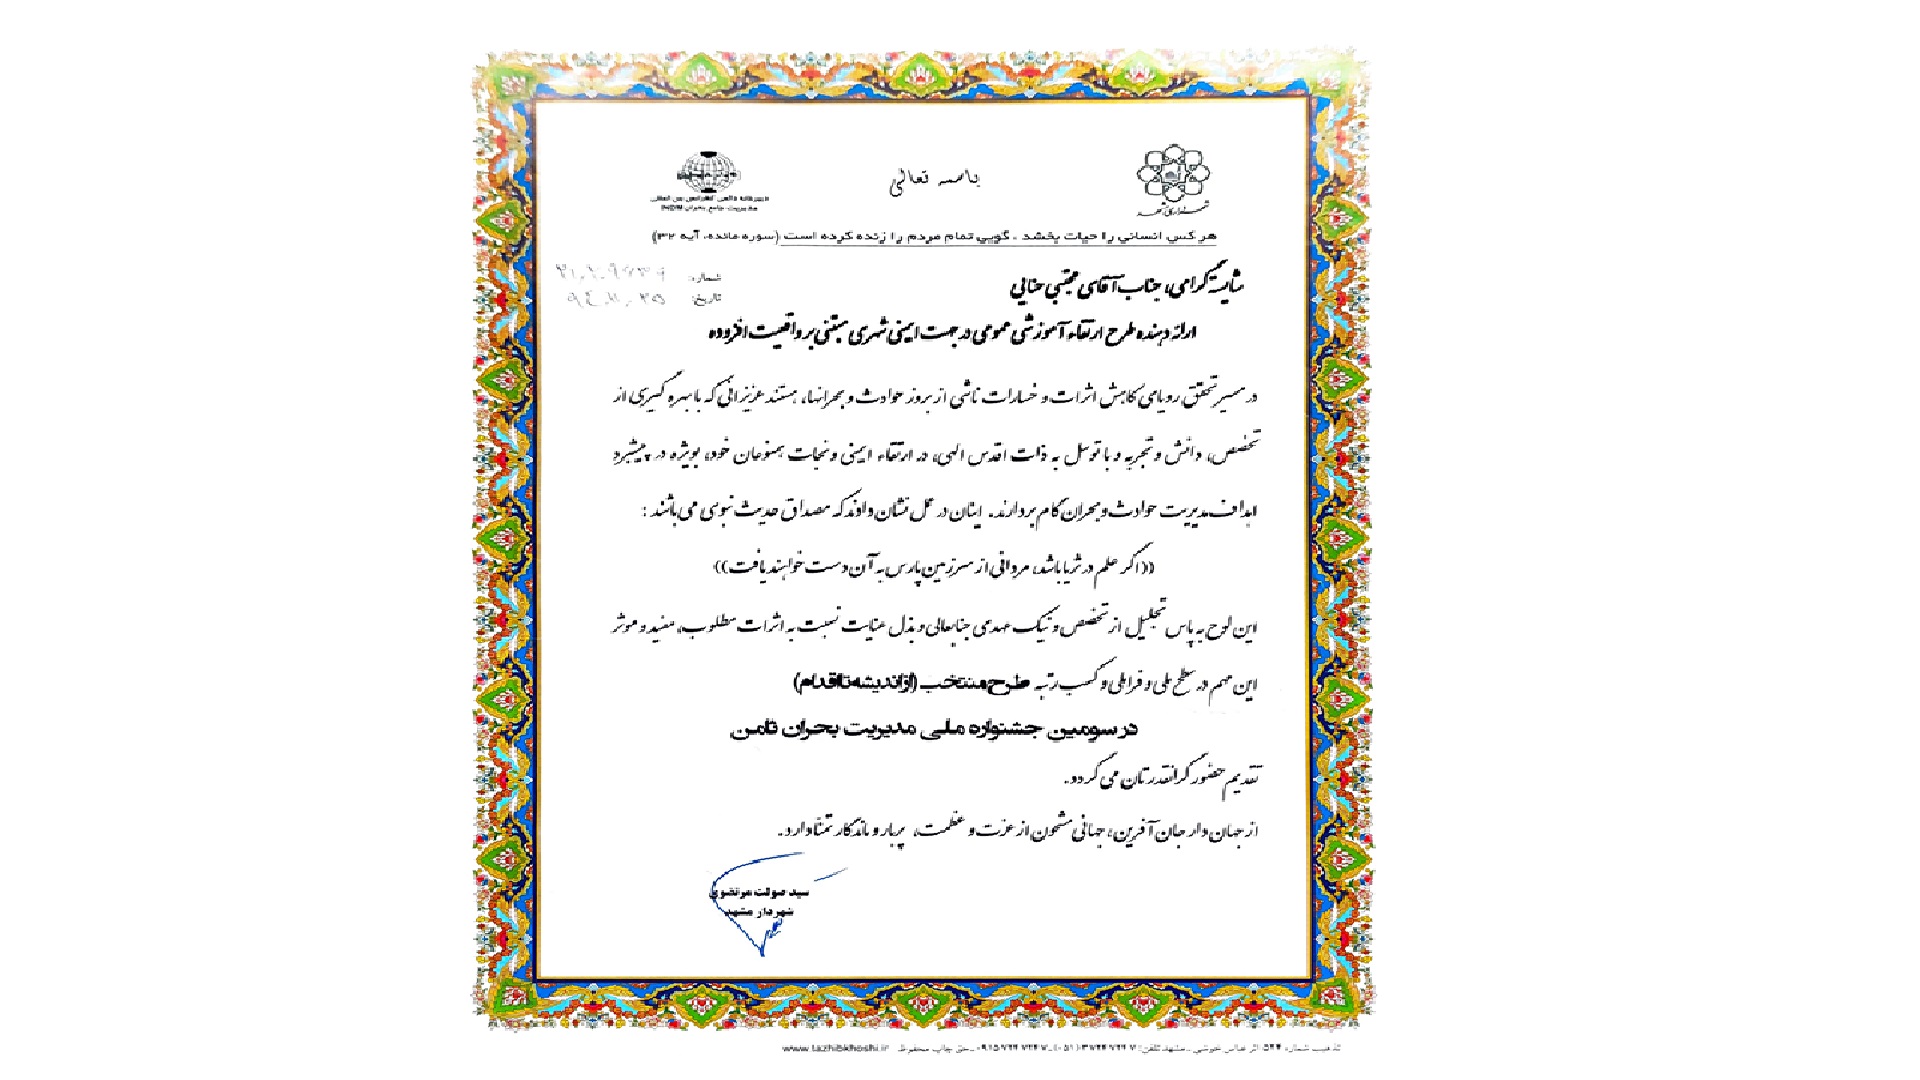 باسمه تعالی
شهرداری مشهد
دبیرخانه دائمی کنفرانس بین المللی
مدیریت جامع بحران INDM
هر کس انسانی را حیات بخشد - گویی تمام مردم را زنده کرده است (سوره مائده، آیه ۳۲)
شماره:
تاریخ:
شایسته گرامی، جناب آقای مجتبی حنایی
ارائه دهنده طرح ارتقاء آموزشی عمومی در جهت ایمنی شهری مبتنی بر واقعیت افزوده
در مسیر تحقق رویای کاهش اثرات و خسارات ناشی از بروز حوادث و بحرانها، هستند عزیزانی که با بهره گیری از
تخصص، دانش و تجربه و با توسل به ذات اقدس الهی، در ارتقاء ایمنی و نجات همنوعان خود، بویژه در پیشبرد
اهداف مدیریت حوادث و بحران گام بردارند. اینان در عمل نشان دادند که مصداق حدیث نبوی می باشند :
((اگر علم در ثریا باشد، مردانی از سرزمین پارس به آن دست خواهند یافت))
این لوح به پاس تجلیل از تخصص و نیک عهدی جنابعالی و بذل عنایت نسبت به اثرات مطلوب، مفید و موثر
این مهم در سطح ملی و فراملی و کسب رتبه طرح منتخب (از اندیشه تا اقدام)
در سومین جشنواره ملی مدیریت بحران ثامن
تقدیم حضور گرانقدرتان می گردد.
از جهان دار جهان آفرین، جهانی مشحون از عزت و عظمت، پربار و ماندگار تمنا دارد.
سید صولت مرتضوی
شهردار مشهد
تذهیب شماره ۵۲۴ اثر عباس خوشی - مشهد تلفن: ۳۷۲۴۷۲۴۷ (۰۵۱) - ۰۹۱۵۷۲۴۷۲۴۷ - حق چاپ محفوظ www.tazhibkhoshi.ir